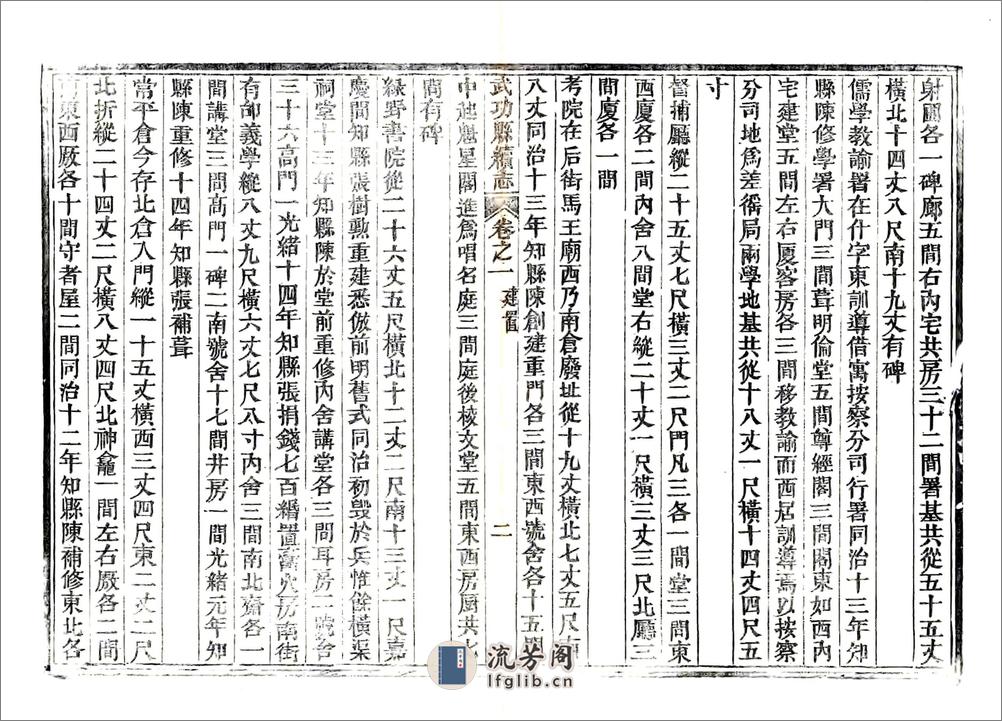 射圃各一碑廊五間右內宅共房三十二間署基共從五十五丈
橫北十四丈八尺南十九丈有碑
儒學教諭署在什字東訓導借寓按察分司行署同治十三年知
縣陳修學署大門三間葺明倫堂五間尊經閣三間閣東如西內
宅建堂五間左右廈客房各三間移教諭而西居訓導焉以按察
分司地爲差徭局兩學地基共從十八丈一尺橫十四丈四尺五
寸
督捕廳縱二十五丈七尺橫三丈二尺門凡三各一間堂三間東
西廈各二間內舍八間堂右縱二十丈一尺橫三丈三尺北廳三
間廈各一間
考院在后街馬王廟西乃南倉廢址從十九丈橫北七丈五尺南
八丈同治十三年知縣陳創建重門各三間東西號舍各十五間
武功縣續志 卷之一 建置 二
中起魁星閣進爲唱名庭三間庭後棱文堂五間東西房厨共七
間有碑
綠野書院從二十六丈五尺橫北十二丈二尺南十三丈一尺嘉
慶間知縣張樹勲重建悉倣前明舊式同治初毀於兵惟餘橫渠
祠堂十三年知縣陳於堂前重修內舍講堂各三間耳房二號舍
三十六高門一光緒十四年知縣張捐錢七百緡置膏火房南街
有卹義學縱八丈九尺橫六丈七尺八寸內舍三間南北齋各一
間講堂三間高門一碑二南號舍十七間井房一間光緒元年知
縣陳重修十四年知縣張補葺
常平倉今存北倉入門縱一十五丈橫西三丈四尺東二丈二尺
北折縱二十四丈二尺橫八丈四尺北神龕一間左右厫各二間
東西厫各十間守者屋二間同治十二年知縣陳補修東北各
流芳阁
lfglib.cn